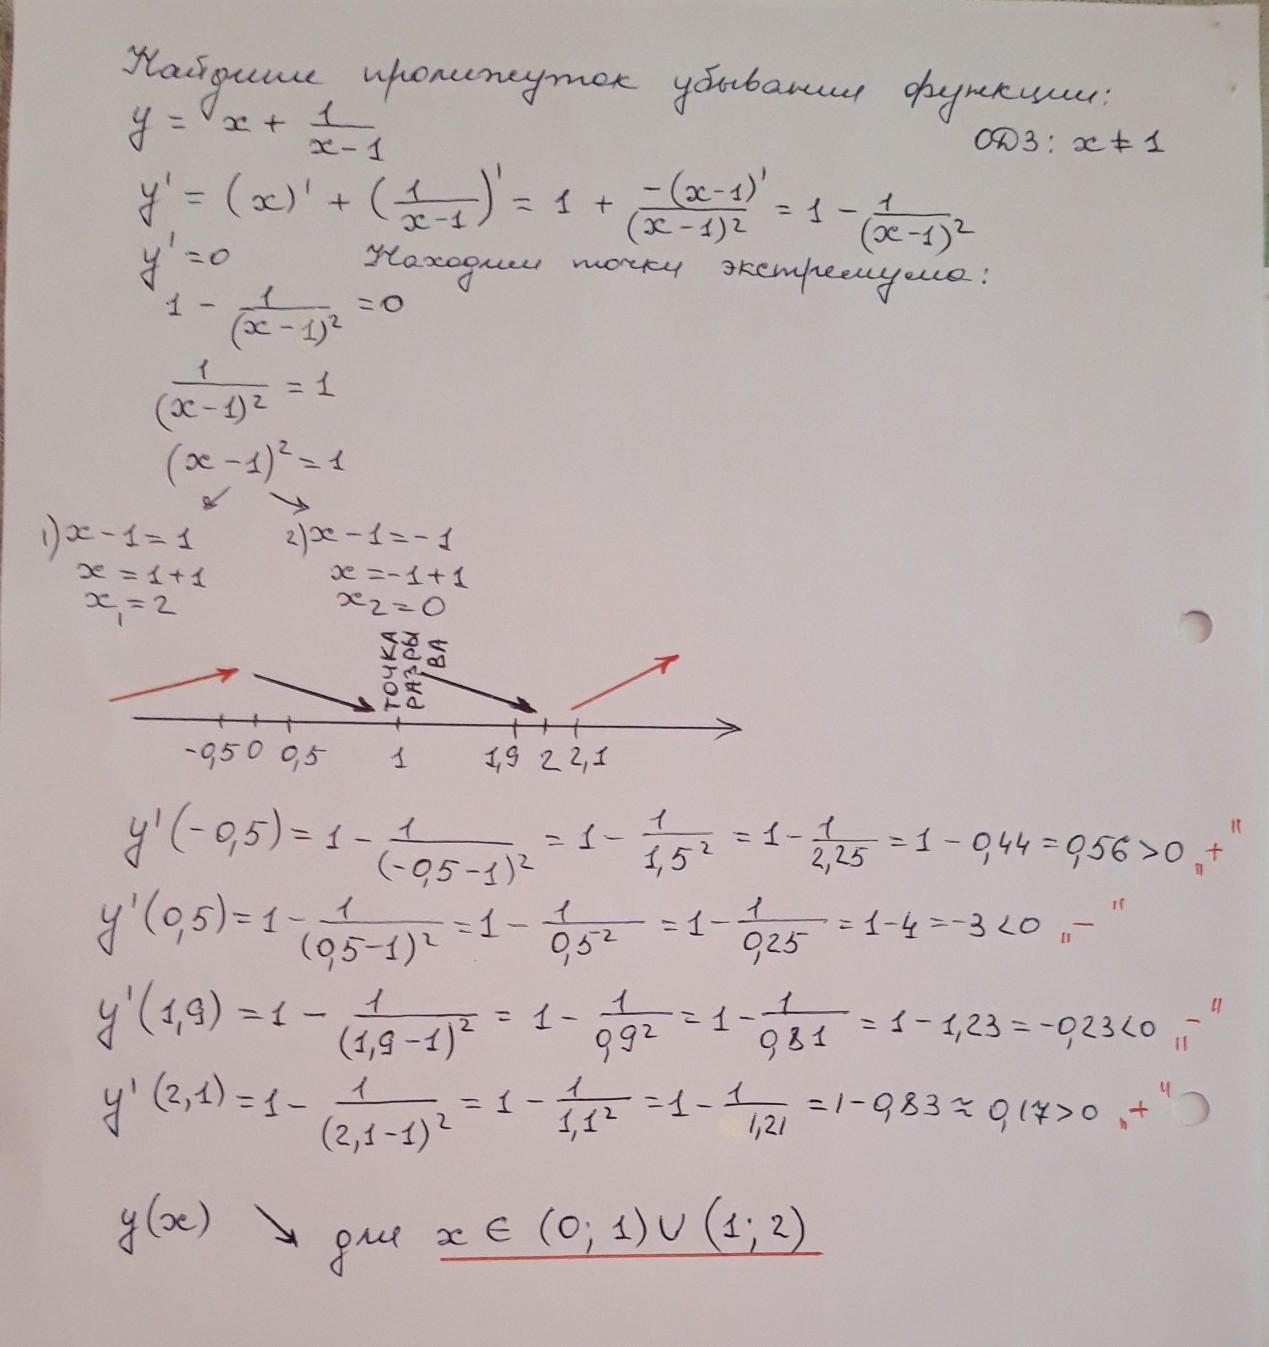 Найдите промежуток убывания функции:
y = x + 1/(x-1)
ОДЗ: x ≠ 1
y' = (x)' + (1/(x-1))' = 1 + -(x-1)'/(x-1)² = 1 - 1/(x-1)²
y' = 0 Находим точки экстремума:
1 - 1/(x-1)² = 0
1/(x-1)² = 1
(x-1)² = 1
1) x-1 = 1 2) x-1 = -1
x = 1+1 x = -1+1
x₁ = 2 x₂ = 0
ТОЧКА
РАЗРЫ
ВА
-0,5 0 0,5 1 1,9 2 2,1
y'(-0,5) = 1 - 1/(-0,5-1)² = 1 - 1/1,5² = 1 - 1/2,25 = 1 - 0,44 = 0,56 > 0 „+"
y'(0,5) = 1 - 1/(0,5-1)² = 1 - 1/0,5² = 1 - 1/0,25 = 1-4 = -3 < 0 „-"
y'(1,9) = 1 - 1/(1,9-1)² = 1 - 1/0,9² = 1 - 1/0,81 = 1 - 1,23 = -0,23 < 0 „-"
y'(2,1) = 1 - 1/(2,1-1)² = 1 - 1/1,1² = 1 - 1/1,21 = 1 - 0,83 ≈ 0,17 > 0 „+"
y(x) ↘ для x ∈ (0; 1) ∪ (1; 2)